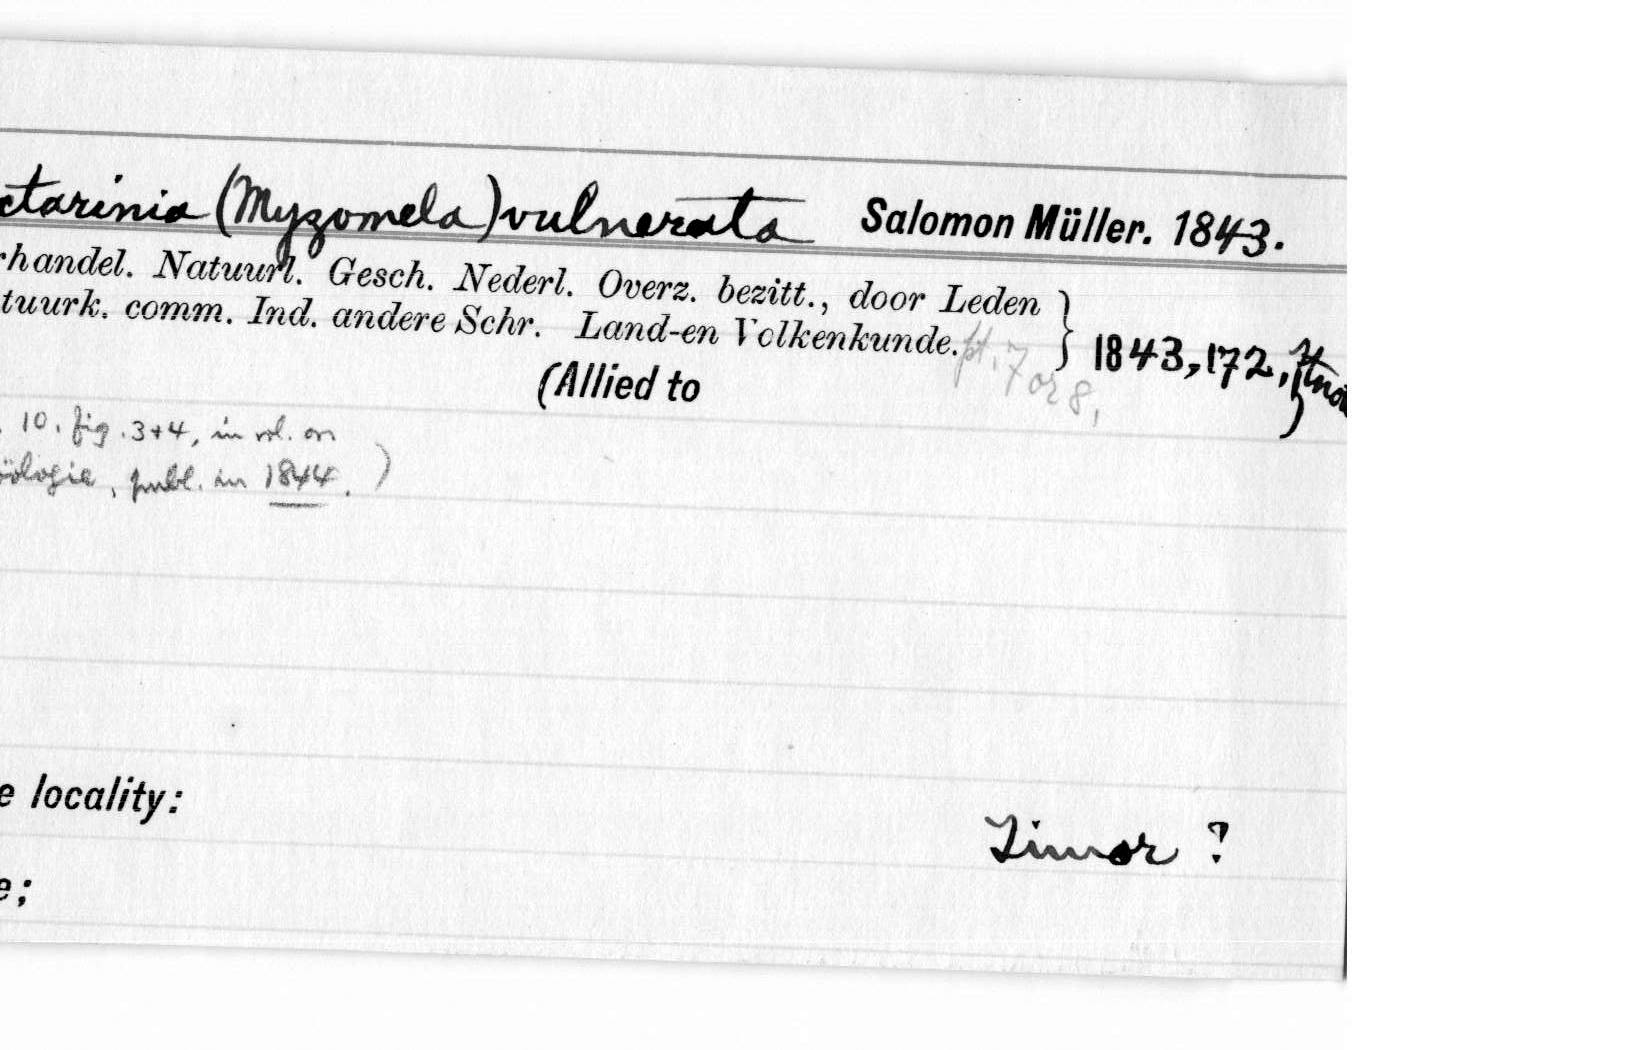 ctarinia (Myzomela) vulnerata Salomon Müller. 1843.
rhandel. Natuurl. Gesch. Nederl. Overz. bezitt., door Leden
tuurk. comm. Ind. andere Schr. Land-en Volkenkunde. pt. 7 or 8, } 1843, 172, ftno
(Allied to )
. 10. fig. 3+4, in vol. on
öologie, publ. in 1844. )
e locality:
Timor ?
e;